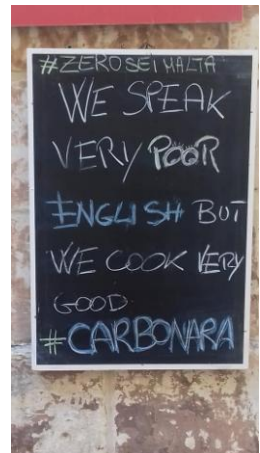 #ZEROSEIMALTA
WE SPEAK
VERY POOR
ENGLISH BUT
WE COOK VERY
GOOD
#CARBONARA